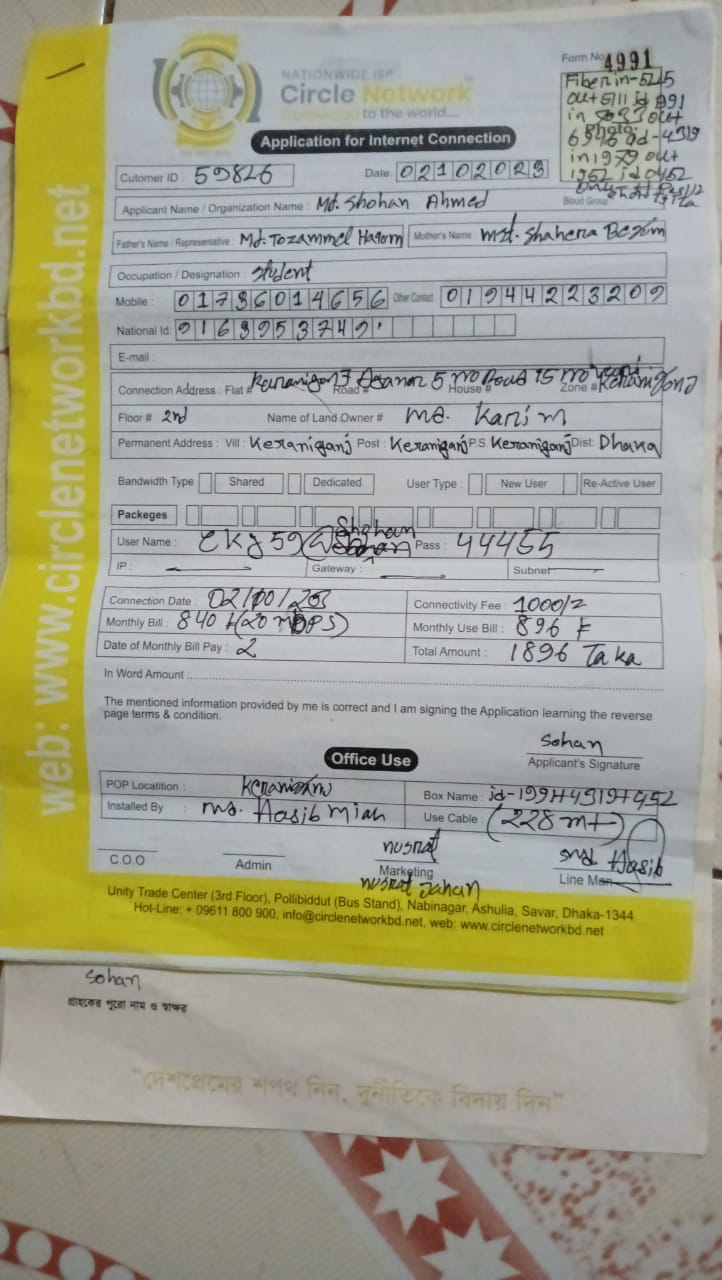 NATIONWIDE ISP
Circle Network
Connected to the world....
Form No 4991
Fiber in-5245
out 5711 id 991
out
id-4919
in 1979 out
1952 id 0452
Application for Internet Connection
Cutomer ID : 59826 Date: 02102023
Blood Group
Applicant Name / Organization Name : Md. Shohan Ahmed
Father's Name / Representative : Md. Tozammel Hagom Mother's Name Mst. Shahera Begom
Occupation / Designation : Student
Mobile : 01736014656 Other Contact 01944223209
National Id: 9163953749
E-mail :
Connection Address : Flat # Road # 5 House # 15 Zone # Keranigonj
Floor # 2nd Name of Land Owner # Md. Karim
Permanent Address : Vill : Keraniganj Post : Keraniganj P.S. Keraniganj Dist: Dhaka
Bandwidth Type Shared Dedicated User Type : New User Re-Active User
Packeges
User Name : ckj59@Shohan Pass : 44455
IP : Gateway : Subnet
Connection Date : 02/10/203 Connectivity Fee : 1000/=
Monthly Bill : 840 (20 MBPS) Monthly Use Bill : 896
Date of Monthly Bill Pay : 2 Total Amount : 1896 Taka
In Word Amount :
The mentioned information provided by me is correct and I am signing the Application learning the reverse
page terms & condition.
Sohan
Office Use
Applicant's Signature
POP Locatition : Box Name : id-1991+4919+452
Installed By : Md. Hasib Miah Use Cable : (228 mt)
nusrat
Md Hasib
C.O.O Admin Marketing Line Man
nusrat Jahan
Unity Trade Center (3rd Floor), Pollibiddut (Bus Stand), Nabinagar, Ashulia, Savar, Dhaka-1344
Hot-Line: + 09611 800 900, info@circlenetworkbd.net, web: www.circlenetworkbd.net
web: www.circlenetworkbd.net
Sohan
গ্রাহকের পুরো নাম ও স্বাক্ষর
"দেশপ্রেমের শপথ নিন, দুর্নীতিকে বিদায় দিন"